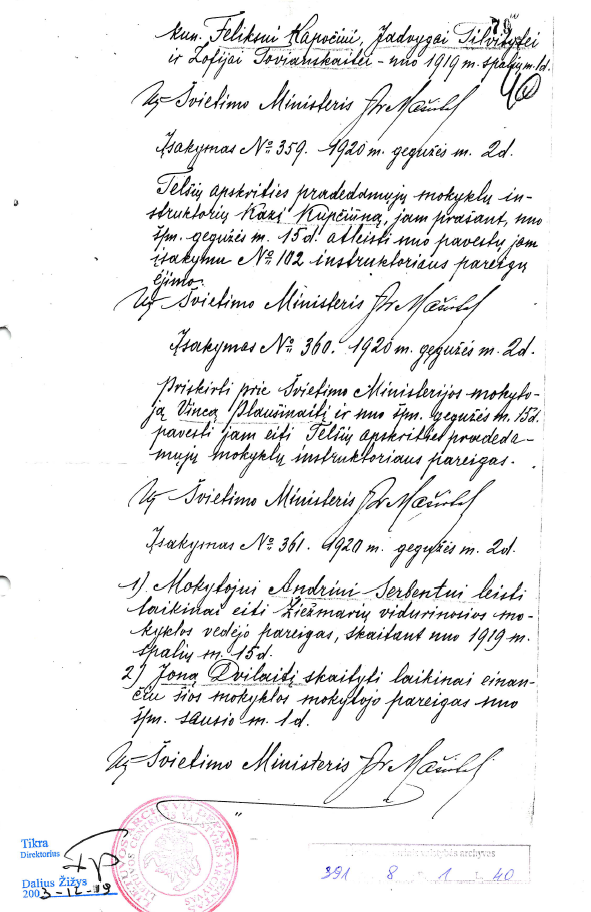 kun. Feliksui Kapočiui, Jadvygai Tilvitytei
ir Zofijai Tovianskaitei – nuo 1919 m. spalių m. 1d.
Už Švietimo Ministeris
Įsakymas № 359. 1920 m. gegužės m. 2d.
Telšių apskrities pradedamųjų mokyklų in-
struktorių Kazį Kupčiūną, jam prašant, nuo
šm. gegužės m. 15d. atleisti nuo pavestų jam
įsakymu № 102 instruktoriaus pareigų
ėjimo.
Už Švietimo Ministeris
Įsakymas № 360. 1920 m. gegužės m. 2d.
Priskirti prie Švietimo Ministerijos mokyto-
ją Vincą Plaušinaitį ir nuo šm. gegužės m. 15d.
pavesti jam eiti Telšių apskrities pradeda-
mųjų mokyklų instruktoriaus pareigas.
Už Švietimo Ministeris
Įsakymas № 361. 1920 m. gegužės m. 2d.
1) Mokytojui Andriui Serbentui leisti
laikinai eiti Žiežmarių vidurinosios mo-
kyklos vedėjo pareigas, skaitant nuo 1919 m.
spalių m. 15d.
2) Joną Dvilaitį skaityti laikinai einan-
čiu šios mokyklos mokytojo pareigas nuo
šm. sausio m. 1d.
Už Švietimo Ministeris
Tikra
Direktorius
Dalius Žižys
2003-12-19
archyvas
391 8 1 40